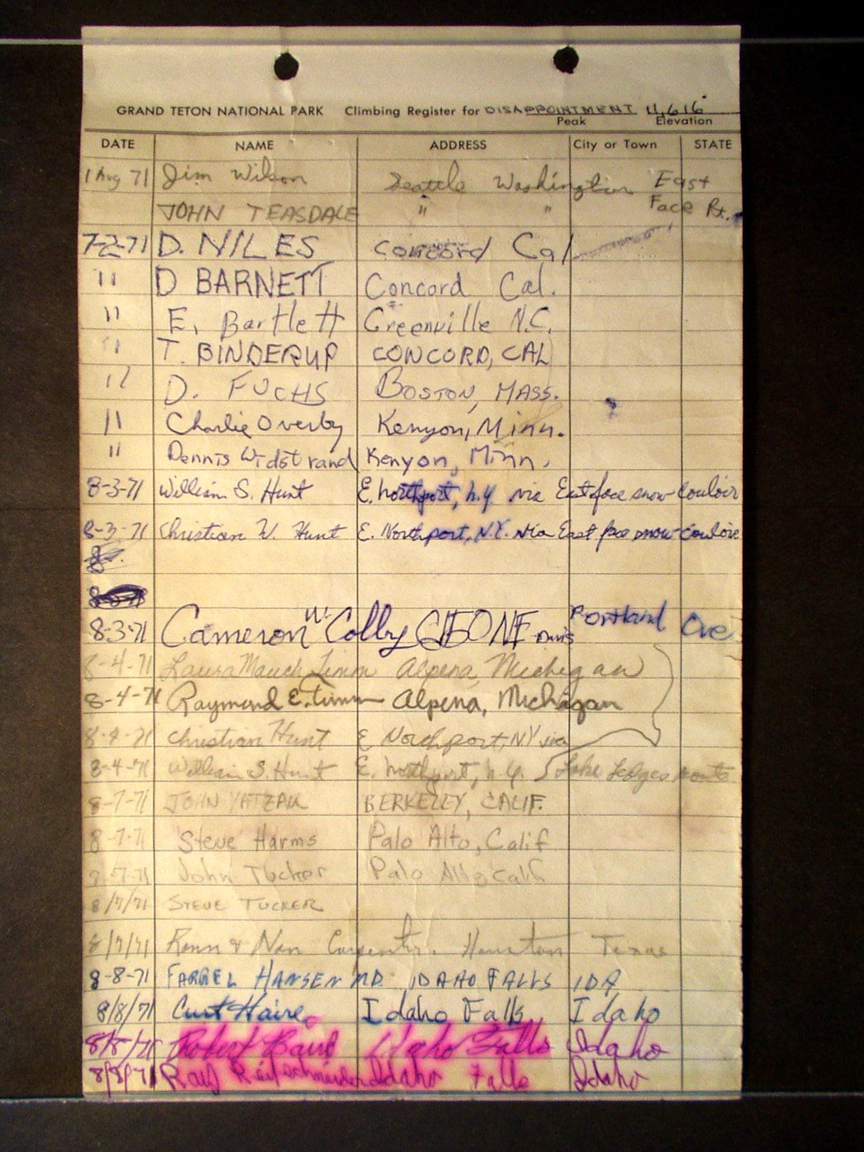 GRAND TETON NATIONAL PARK Climbing Register for DISAPPOINTMENT 11,616
Peak Elevation
DATE NAME ADDRESS City or Town STATE
1 Aug 71 Jim Wilson Seattle Washington East
JOHN TEASDALE " " Face Rt.
7-2-71 D. NILES Concord Cal
11 D BARNETT Concord Cal.
11 E. Bartlett Greenville N.C.
11 T. BINDERUP CONCORD, CAL
11 D. FUCHS BOSTON, MASS.
11 Charlie Overby Kenyon, Minn.
11 Dennis Widstrand Kenyon, Minn.
8-3-71 William S. Hunt E. Northport, N.Y. via East face snow couloir
8-3-71 Christian W. Hunt E. Northport, N.Y. via East face snow couloir
8-3-71 Cameron "W" Colby Portland Ore
8-4-71 Laura Mauch Timm Alpena, Michigan
8-4-71 Raymond E. Timm Alpena, Michigan
8-4-71 Christian Hunt E Northport, NY via
8-4-71 William S. Hunt E. Northport, N.Y. Lake Ledges route
8-7-71 JOHN BERKELEY, CALIF.
8-7-71 Steve Harms Palo Alto, Calif
8-7-71 John Tucker Palo Alto Calif
8/7/71 STEVE TUCKER
8/7/71 Ronn & Nan Carpenter, Houston Texas
8-8-71 FARREL HANSEN MD. IDAHO FALLS IDA
8/8/71 Curt Haire Idaho Falls, Idaho
8/8/71 Robert Baird Idaho Falls Idaho
8/8/71 Idaho Falls Idaho